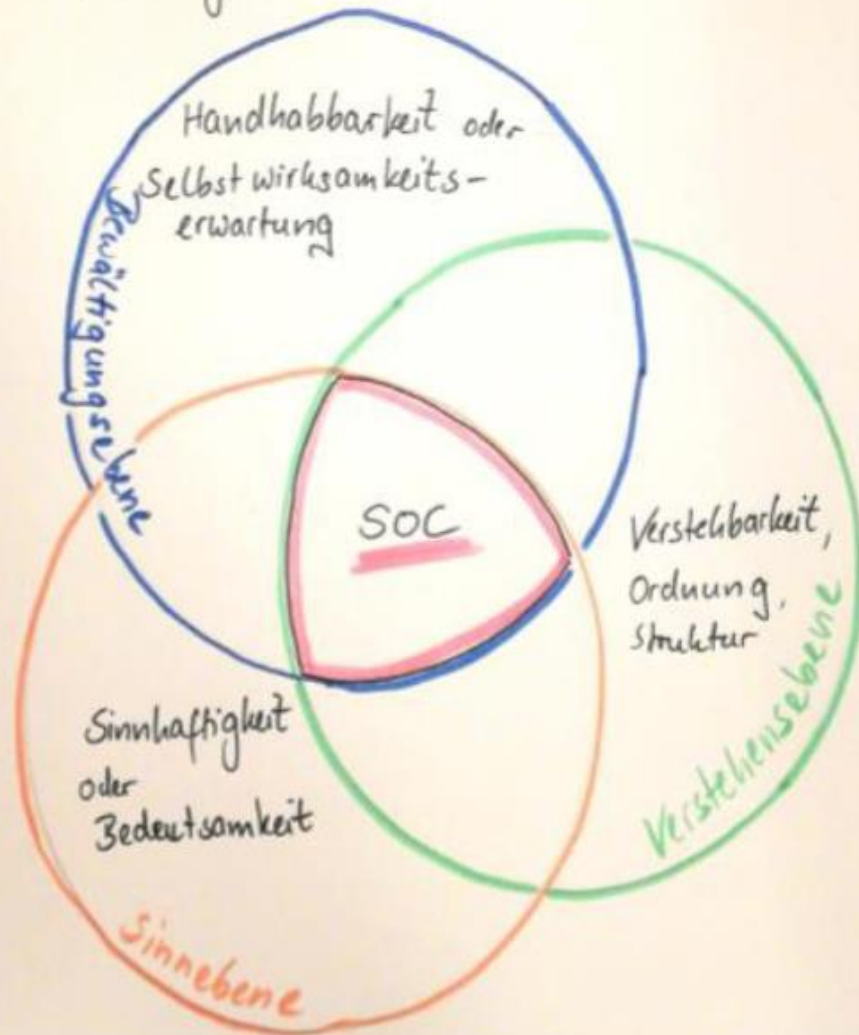 Handhabbarkeit oder
Selbstwirksamkeits-
erwartung
Bewältigungsebene
SOC
Verstehbarkeit,
Ordnung,
Struktur
Verstehensebene
Sinnhaftigkeit
oder
Bedeutsamkeit
Sinnebene